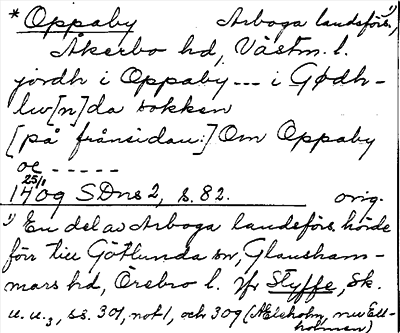 * Oppaby Arboga landsförs.,¹)
Åkerbo hd, Västm. l.
jordh i Oppaby --- i Gødh-
lw[n]da sokken
[på frånsidan:] Om Oppaby
oc -----
25/1
1409 SDns 2, s. 82. orig.
¹) En del av Arboga landsförs. hörde
förr till Götlunda sn, Glansham-
mars hd, Örebro l. Jfr Styffe, Sk.
u. u.₃, ss. 301, not 1, och 309 (Ælsholm, nuv. Ell-
holmen)